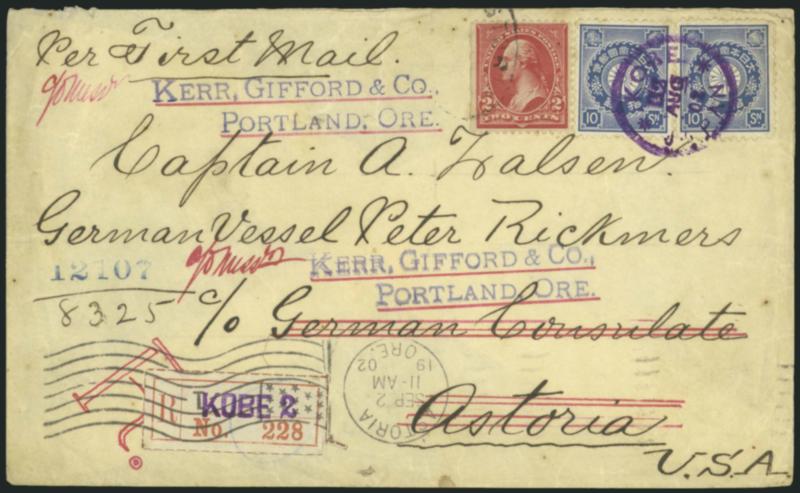 Per First Mail.
KERR, GIFFORD & CO.,
PORTLAND, ORE.
UNITED STATES POSTAGE
2 2
TWO CENTS
10 SN
10 SN
KOBE
Captain A. Walsen.
German Vessel Peter Rickmers
12107
c/o Messrs
KERR, GIFFORD & CO.,
PORTLAND, ORE.
8325
c/o German Consulate
ASTORIA
SEP 2
11-AM
19 02
ORE.
R KOBE 2
No. 228
Astoria
U.S.A.